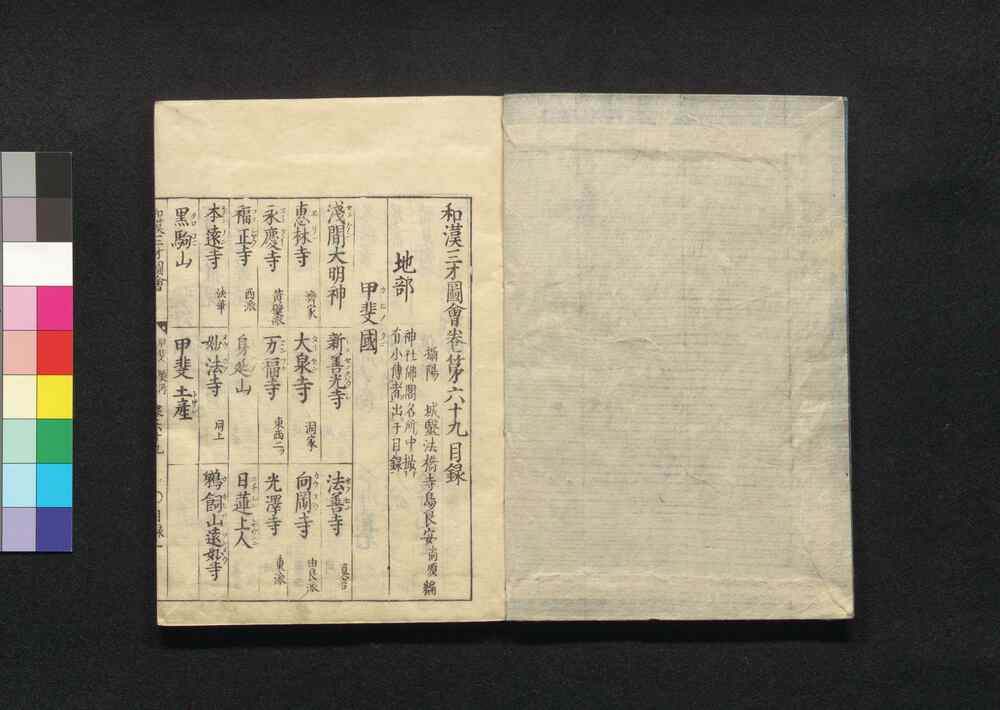 和漢三才圖會卷第六十九目録
攝陽 城醫法橋寺島良安尚順編
地部
神社佛閣名所中撮
有小傳者出于目録
甲斐國
淺間大明神 新善光寺 法善寺 真言
惠林寺 濟家 大泉寺 洞家 向岡寺 由良派
永慶寺 黄檗派 万福寺 東西二 光澤寺 東派
福正寺 西派 身延山 日蓮上人
本遠寺 法華 妙法寺 同上 鵜飼山遠妙寺
黒駒山 甲斐土産
和漢三才圖會 甲斐 目録